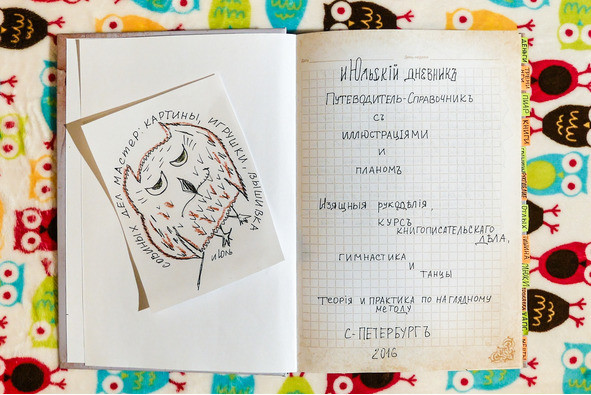 совиных дел мастер: картины, игрушки, вышивка
июль
иЮльскiй дневникъ
Путеводитель-Справочникъ
съ
иллюстрацiями
и
планомъ
Изящныя рукодѣлiя,
курсъ
книгописательскаго
дѣла,
гимнастика
и
танцы
Теорiя и практика по наглядному
методу
С-Петербургъ
2016
деньги
пиар
книги
отдых